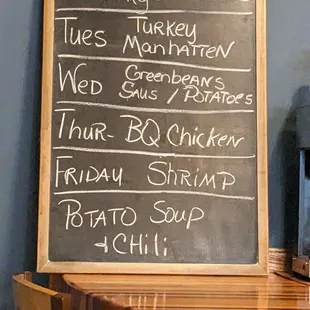 Tues Turkey
Manhatten
Wed Greenbeans
Saus / Potatoes
Thur- BQ Chicken
Friday Shrimp
Potato Soup
+ Chili